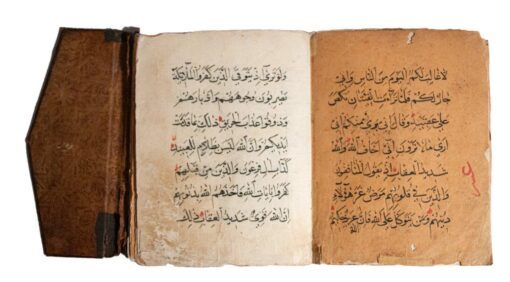 لا غالب لكم اليوم من الناس واني
جار لكم فلما تراءت الفئتان نكص
على عقبيه وقال اني بريء منكم اني
ارى ما لا ترون اني اخاف الله والله
شديد العقاب اذ يقول المنافقون
والذين في قلوبهم مرض غر هؤلاء
دينهم ومن يتوكل على الله فان عزيز حكيم
الله
ولو ترى اذ يتوفى الذين كفروا الملائكة
يضربون وجوههم وادبارهم
وذوقوا عذاب الحريق ذلك بما قدمت
ايديكم وان الله ليس بظلام للعبيد
كداب ال فرعون والذين من قبلهم
كفروا بايات الله فاخذهم الله بذنوبهم
ان الله قوي شديد العقاب ذلك